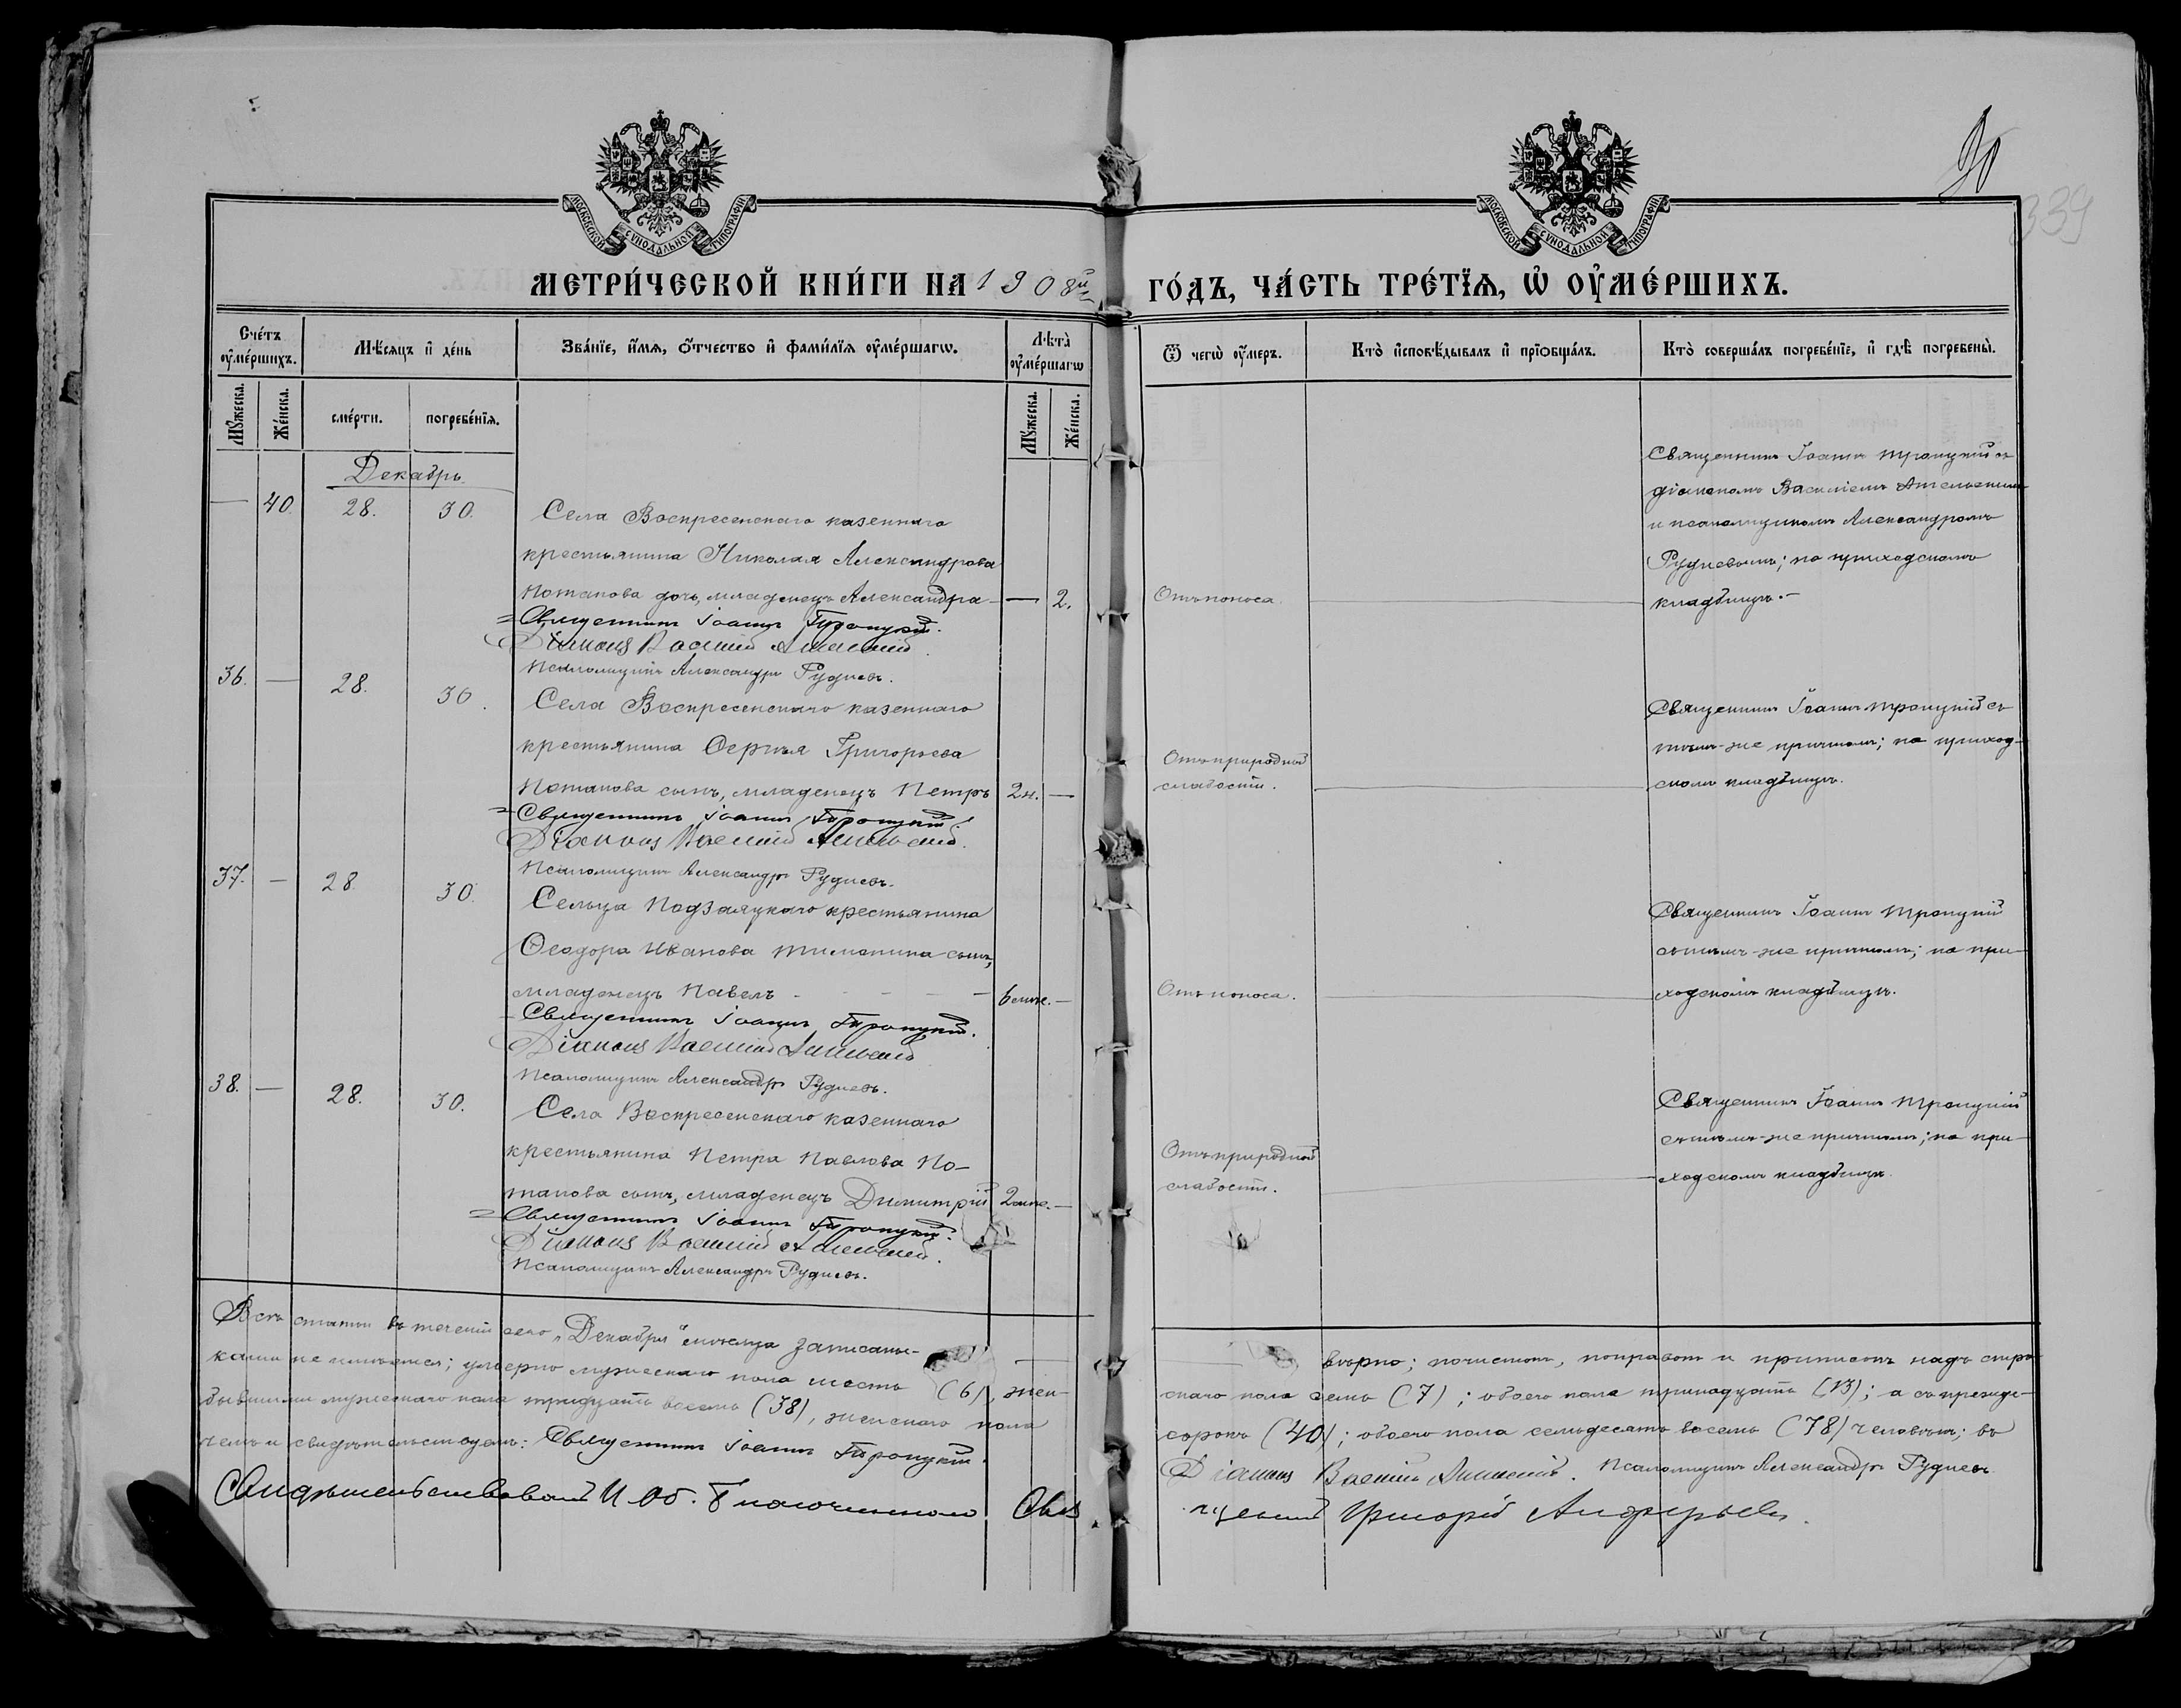 90
339
МОСКОВСКОЙ СѴНОДАЛЬНОЙ ТИПОГРАФІИ
МОСКОВСКОЙ СѴНОДАЛЬНОЙ ТИПОГРАФІИ
МЕТРИ́ЧЕСКОЙ КНИ́ГИ НА 1908й
ГО́ДЪ, ЧА́СТЬ ТРЕ́ТЇѦ, Ѡ҆ ОУ҆МЕ́РШИХЪ.
Сче́тъ оу҆ме́ршихъ.
Мѣ́сѧцъ и҆ де́нь
Зва́нїе, и҆́мѧ, ѻ҆́тчество и҆ фами́лїѧ оу҆ме́ршагѡ.
Лѣта̀ оу҆ме́ршагѡ
Ѿ чегѡ̀ оу҆́меръ.
Кто̀ и҆сповѣ́дывалъ и҆ прїѡбща́лъ.
Кто̀ соверша́лъ погребе́нїе, и҆ гдѣ̀ погребены̀.
Мꙋ́жеска.
Же́нска.
сме́рти.
погребе́нїѧ.
Мꙋ́жеска.
Же́нска.
Декабрь
— 40. 28. 30.
Села Воскресенскаго казеннаго
крестьянина Николая Александрова
Потапова дочь, младенецъ Александра — 2.
Священникъ Іоаннъ Троицкій.
Діаконъ Василій
Псаломщикъ Александръ Рудневъ.
Отъ поноса.
Священникъ Іоаннъ Троицкій съ
діакономъ Василіемъ
и псаломщикомъ Александромъ
Рудневымъ; на приходскомъ
кладбищѣ.—
36. — 28. 30.
Села Воскресенскаго казеннаго
крестьянина Сергѣя Григорьева
Потапова сынъ, младенецъ Петръ 2н. —
Священникъ Іоаннъ Троицкій.
Діаконъ Василій
Псаломщикъ Александръ Рудневъ.
Отъ природной
слабости.
Священникъ Іоаннъ Троицкій съ
тѣмъ-же причтомъ; на приход-
скомъ кладбищѣ.
37. — 28. 30.
Сельца Подзаяцкаго крестьянина
Ѳеодора Иванова Тимонина сынъ,
младенецъ Павелъ - - - - 6 мѣс. —
Священникъ Іоаннъ Троицкій.
Діаконъ Василій
Псаломщикъ Александръ Рудневъ.
Отъ поноса.
Священникъ Іоаннъ Троицкій
съ тѣмъ-же причтомъ; на при-
ходскомъ кладбищѣ.
38. — 28. 30.
Села Воскресенскаго казеннаго
крестьянина Петра Павлова По-
тапова сынъ, младенецъ Димитрій 2 мѣс. —
Священникъ Іоаннъ Троицкій.
Діаконъ Василій
Псаломщикъ Александръ Рудневъ.
Отъ природной
слабости.
Священникъ Іоаннъ Троицкій
съ тѣмъ-же причтомъ; на при-
ходскомъ кладбищѣ.
Всѣ статьи въ теченіи сего „Декабря“ мѣсяца записаны — вѣрно; почистокъ, поправокъ и приписокъ надъ стро-
ками не имѣется; умерло мужескаго пола шесть (6), жен- скаго пола семь (7); обоего пола тринадцать (13); а съ прежде-
бывшими мужескаго пола тридцать восемь (38), женскаго пола сорокъ (40); обоего пола семьдесятъ восемь (78) человѣкъ; въ
чемъ и свидѣтельствуемъ: Священникъ Іоаннъ Троицкій. Діаконъ Василій Псаломщикъ Александръ Рудневъ
Свидѣтельствовалъ И. об. Благочиннаго Свя щенникъ Григорій